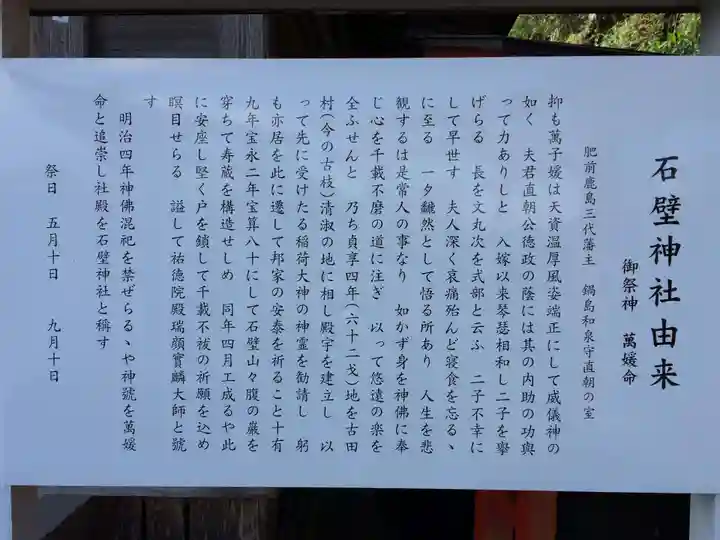 石壁神社由来
御祭神　萬媛命
肥前鹿島三代藩主　鍋島和泉守直朝の室
抑も萬子媛は天資温厚風姿端正にして威儀神の
如く　夫君直朝公徳政の蔭には其の内助の功與
って力ありしと　入嫁以来琴瑟相和し二子を擧
げらる　長を文丸次を式部と云ふ　二子不幸に
して早世す　夫人深く哀痛殆んど寝食を忘るゝ
に至る　一夕飜然として悟る所あり　人生を悲
観するは是常人の事なり　如かず身を神佛に奉
じ心を千載不磨の道に注ぎ　以って悠遠の楽を
全ふせんと　乃ち貞享四年(六十二戈)地を古田
村(今の古枝)清淑の地に相し殿宇を建立し　以
って先に受けたる稲荷大神の神霊を勧請し　躬
も亦居を此に遷して邦家の安泰を祈ること十有
九年宝永二年宝算八十にして石壁山々腹の巌を
穿ちて寿蔵を構造せしめ　同年四月工成るや此
に安座し堅く戸を鎖して千載不祓の祈願を込め
瞑目せらる　謚して祐徳院殿瑞顔實麟大師と號
す
明治四年神佛混祀を禁ぜらるゝや神號を萬媛
命と追崇し社殿を石壁神社と稱す
祭日　五月十日　九月十日